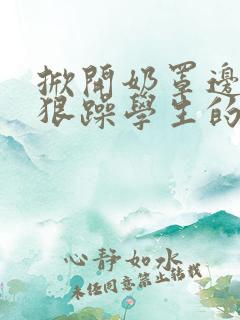 掀開奶罩邊
狠躁學生的
心靜如水
未经同意禁止转载